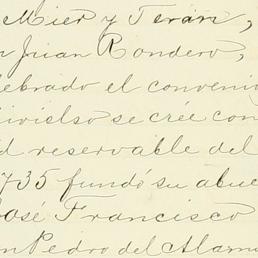 Mier y Terán,
n Juan Rondero,
lebrado el conveni
ivielso se cree con
d reservable del
735 fundó su abue
José Francisco
n Pedro del Alam